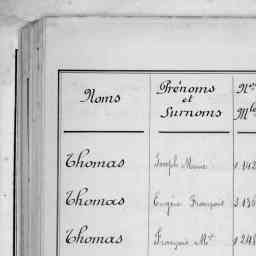 Noms
Prénoms
et
Surnoms
Thomas Joseph Marie
Thomas Eugène François
Thomas François M^ie